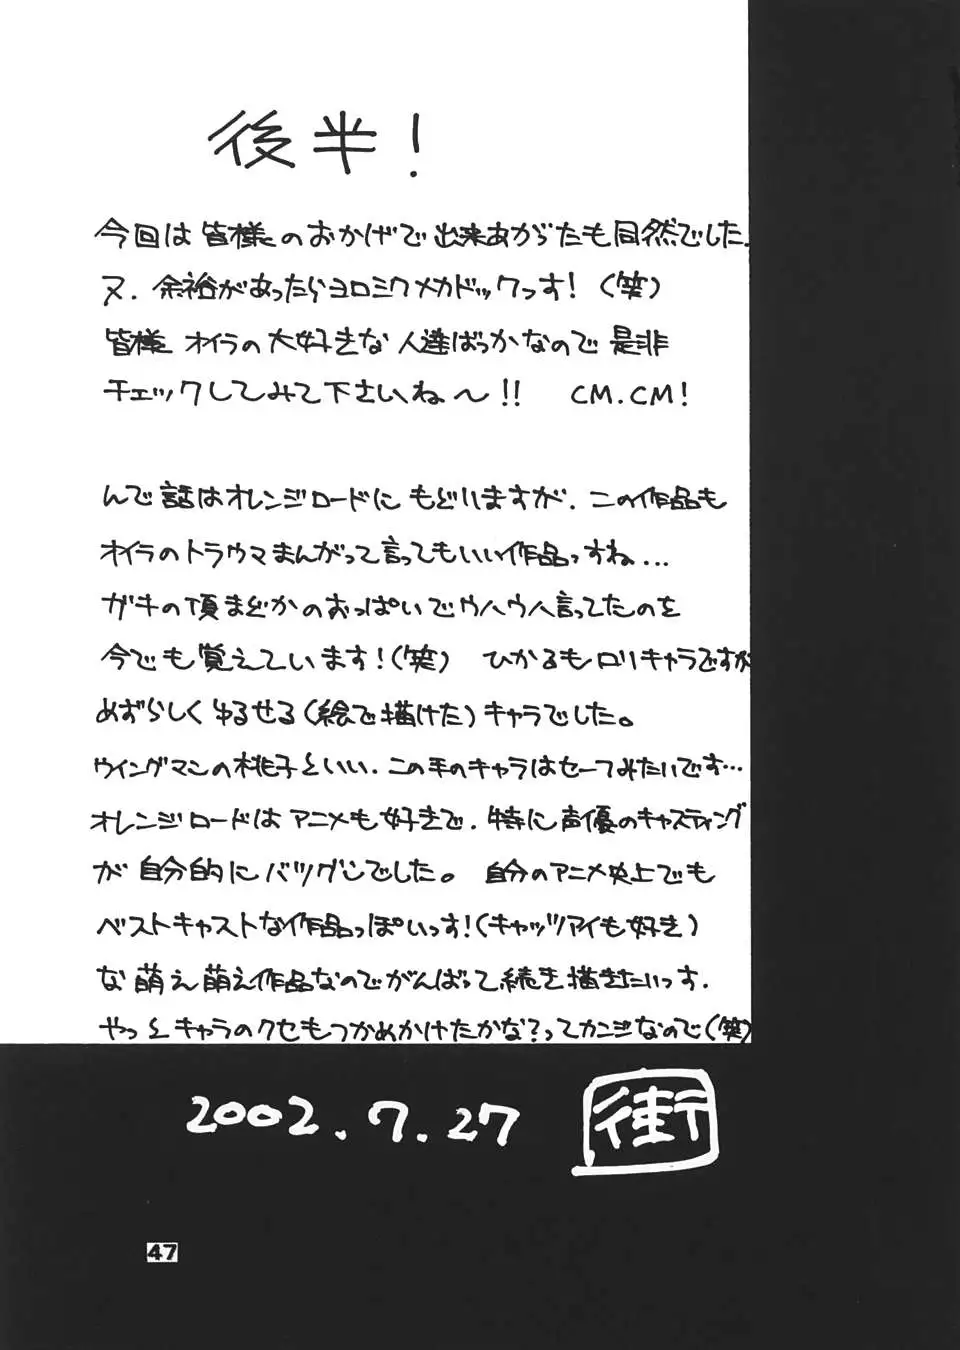 後半!
今回は皆様のおかげで出来あがったも同然でした.
又.余裕があったらヨロシクメカドックっす!(笑)
皆様 オイラの大好きな人達ばっかなので是非
チェックしてみて下さいね〜!! CM.CM!
んで話はオレンジロードにもどいますが.この作品も
オイラのトラウマまんがって言ってもいい作品っすね...
ガキの頃まどかのおっぱいでウハウハ言ってたのを
今でも覚えています!(笑) ひかるもロリキャラですが
めずらしくゆるせる(絵で描けた)キャラでした。
ウイングマンの桃子といい.この手のキャラはセーフみたいです…
オレンジロードはアニメも好きで.特に声優のキャスティング
が自分的にバツグンでした。 自分のアニメ史上でも
ベストキャストな作品っぽいっす!(キャッツアイも好き)
な萌え萌え作品なのでがんばって続き描きたいっす.
やっとキャラのクセもつかめかけたかな?ってカンジなので(笑)
2002.7.27 街
47